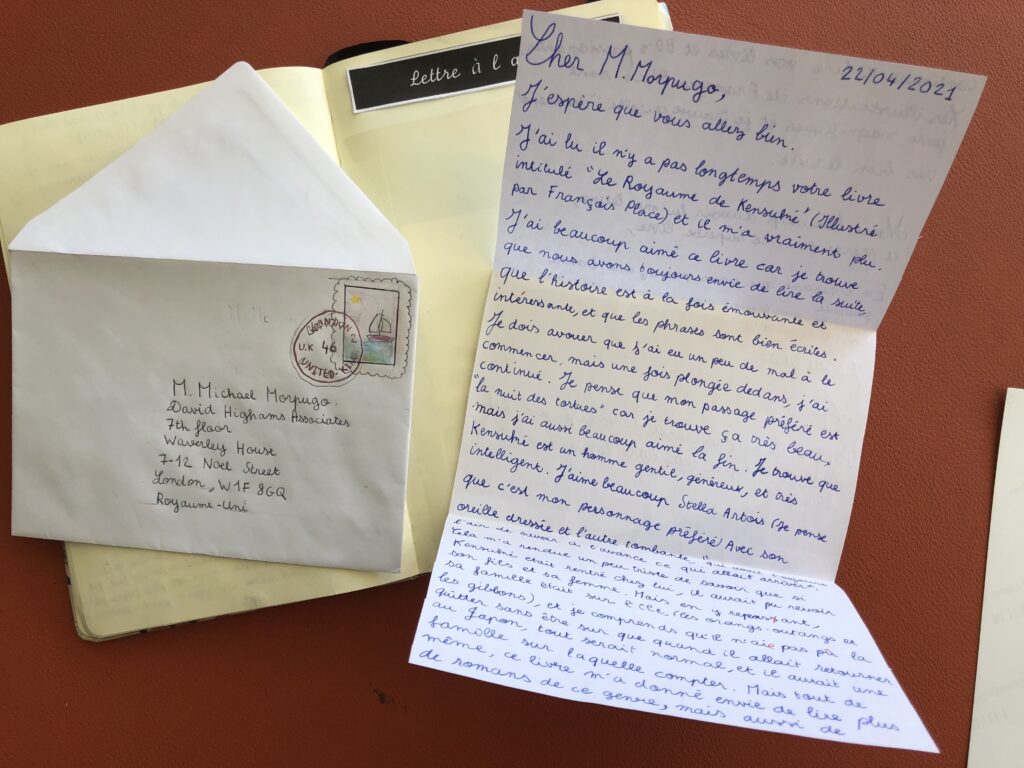 Lettre à l
Cher M. Morpugo,
22/04/2021
J'espère que vous allez bien.
J'ai lu il n'y a pas longtemps votre livre
intitulé "Le Royaume de Kensuké" (Illustré
par François Place) et il m'a vraiment plu.
J'ai beaucoup aimé ce livre car je trouve
que nous avons toujours envie de lire la suite,
que l'histoire est à la fois émouvante et
intéressante, et que les phrases sont bien écrites.
Je dois avouer que j'ai eu un peu de mal à le
commencer, mais une fois plongée dedans, j'ai
continué. Je pense que mon passage préféré est
"la nuit des tortues" car je trouve ça très beau,
mais j'ai aussi beaucoup aimé la fin. Je trouve que
Kensuké est un homme gentil, généreux, et très
intelligent. J'aime beaucoup Stella Artois (Je pense
que c'est mon personnage préféré) Avec son
oreille dressée et l'autre tombante,
l'air de savoir à l'avance ce qui allait arriver.
Cela m'a rendue un peu triste de savoir que si
Kensuké était rentré chez lui, il aurait pu revoir
son fils et sa femme. Mais en y repensant,
sa famille était sur l'île (les orangs-outangs et
les gibbons), et je comprends qu'il n'aie pas pû la
quitter sans être sur que quand il allait retourner
au Japon, tout serait normal, et il aurait une
famille sur laquelle compter. Mais tout de
même, ce livre m'a donné envie de lire plus
de romans de ce genre, mais aussi de
U.K 46
UNITED
M. Michael Morpugo.
David Highams Associates
7th floor
Waverley House
7-12 Noel Street
London, W1F 8GQ
Royaume-Uni